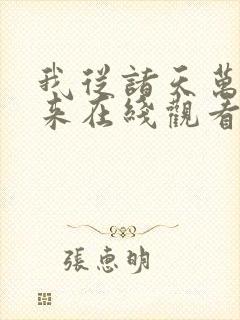 我從諸天萬
来在綫觀看
張惠明